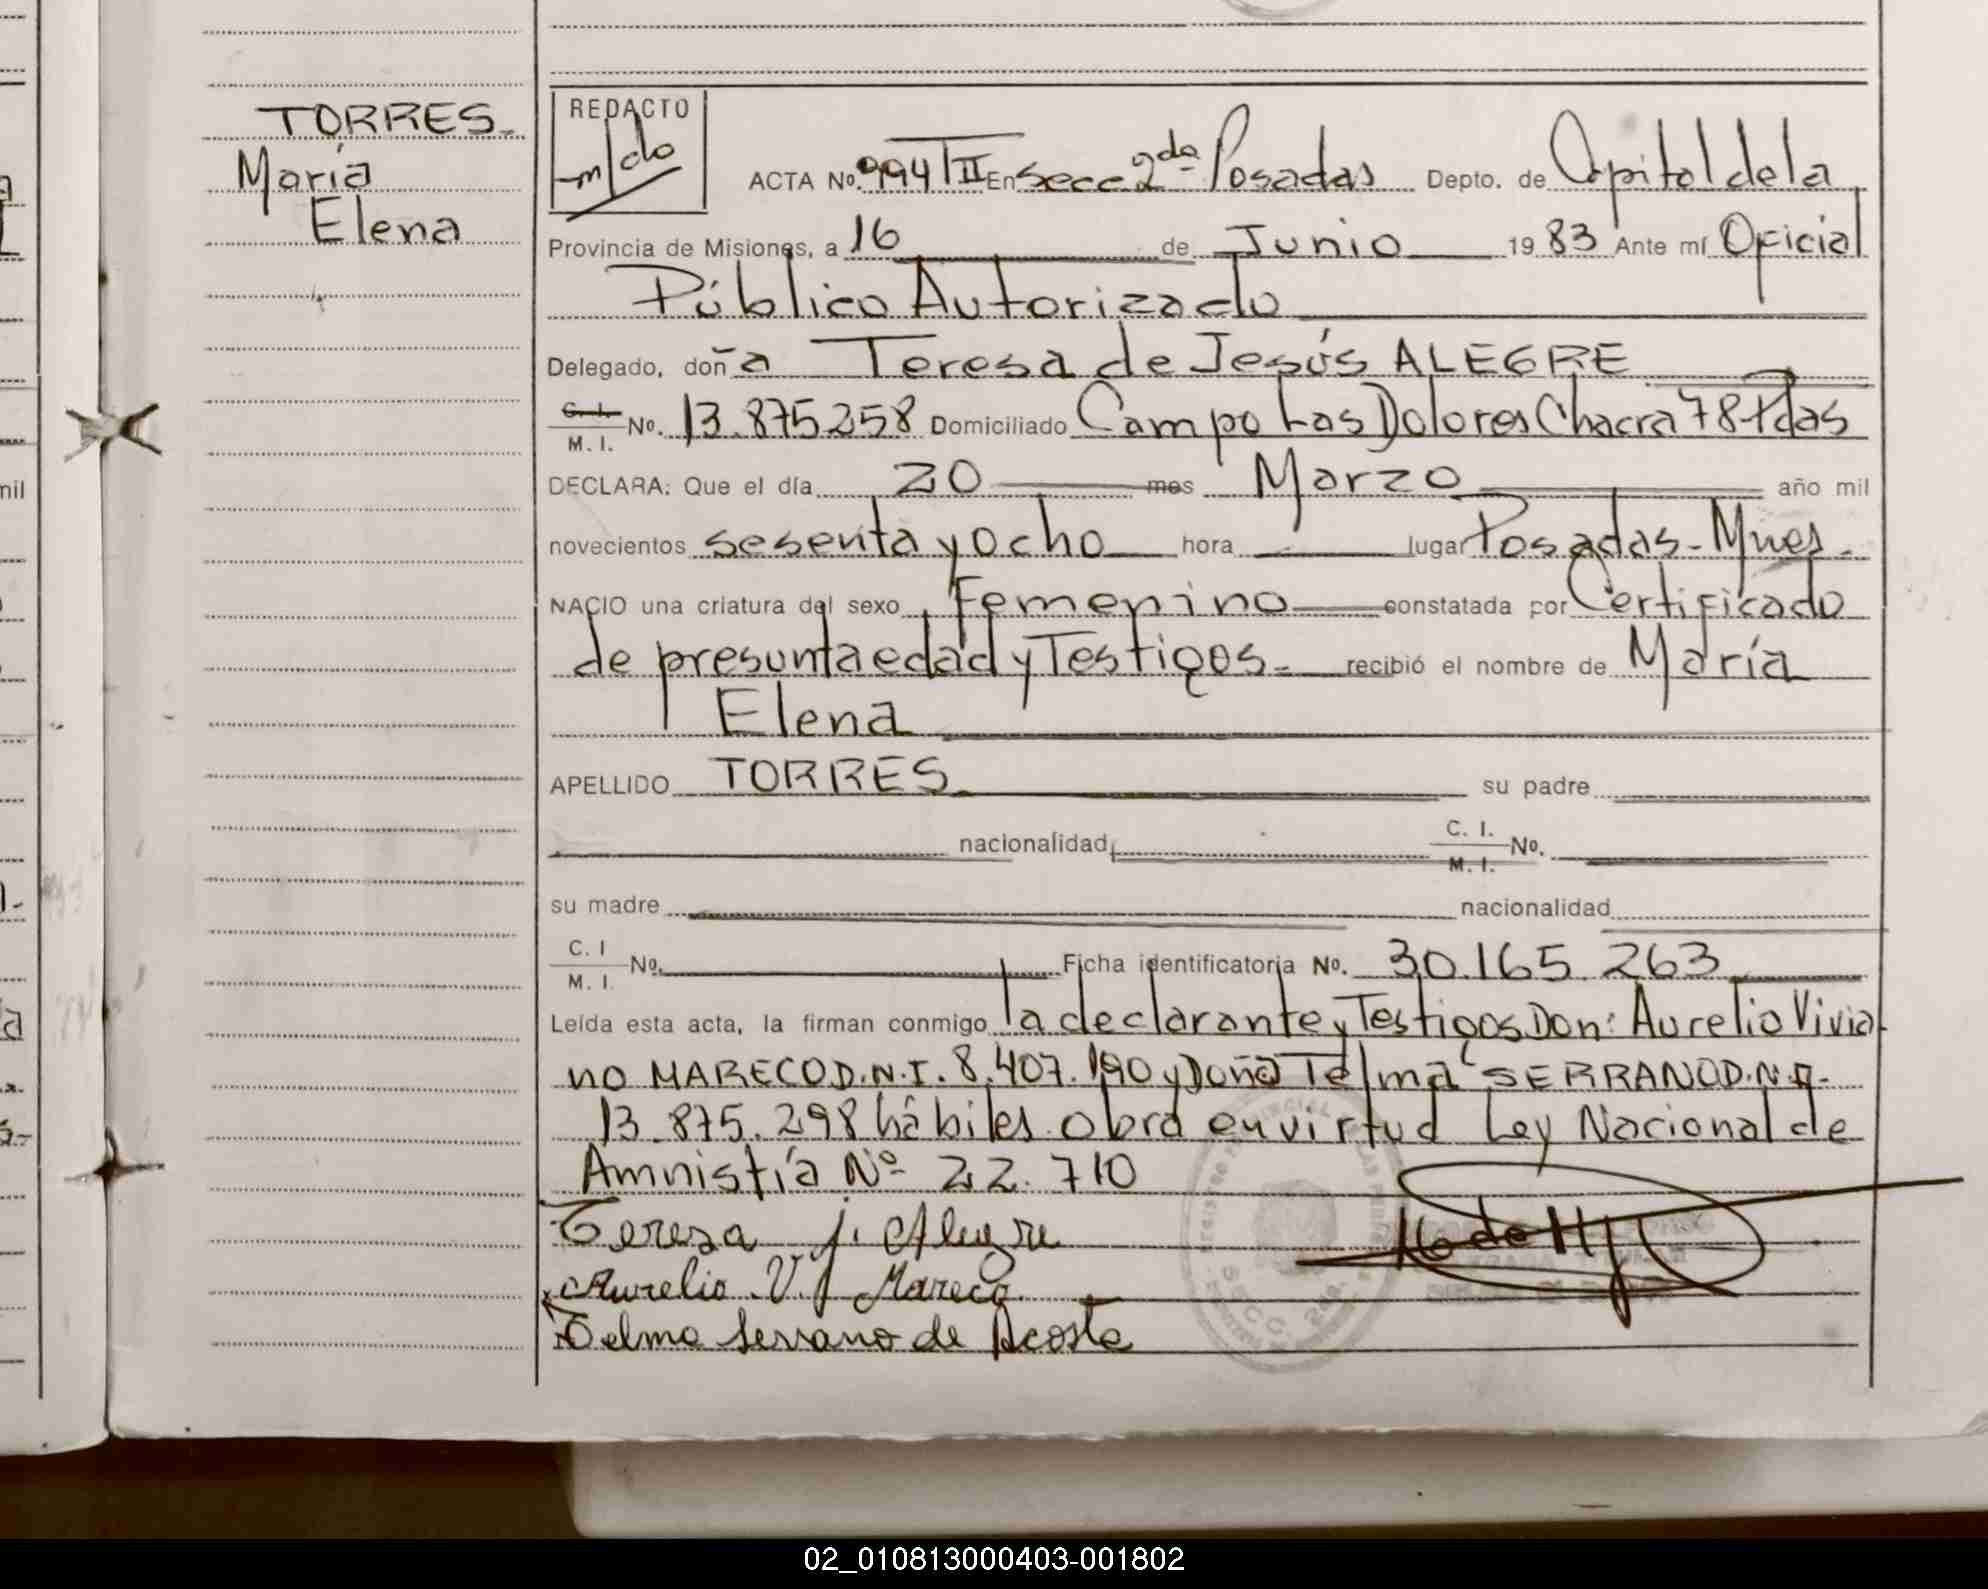 TORRES.
María
Elena
REDACTO
ACTA No. 994 TII En Secc 2da Posadas Depto. de Capital de la
Provincia de Misiones, a 16 de Junio 19 83 Ante mí Oficial
Público Autorizado
Delegado, doña Teresa de Jesús ALEGRE
C. I. M. I. No. 13.875.258 Domiciliado Campo Las Dolores Chacra 78 Pdas
DECLARA: Que el día 20 mes Marzo año mil
novecientos sesenta y ocho hora lugar Posadas - Mnes.
NACIO una criatura del sexo Femenino constatada por Certificado
de presunta edad y Testigos. recibió el nombre de María
Elena
APELLIDO TORRES su padre
nacionalidad C. I. M. I. No.
su madre nacionalidad
C. I M. I. No. Ficha identificatoria No. 30.165.263
Leída esta acta, la firman conmigo la declarante y Testigos Don: Aurelio Vivia
no MARECO D.N.I. 8.407.190 y Doña Telma SERRANO D.N.I.
13.875.298 hábiles obra en virtud Ley Nacional de
Amnistía Nº 22.710
Teresa J. Alegre
Aurelio V. Mareco
Telma Serrano de Acosta
02_010813000403-001802